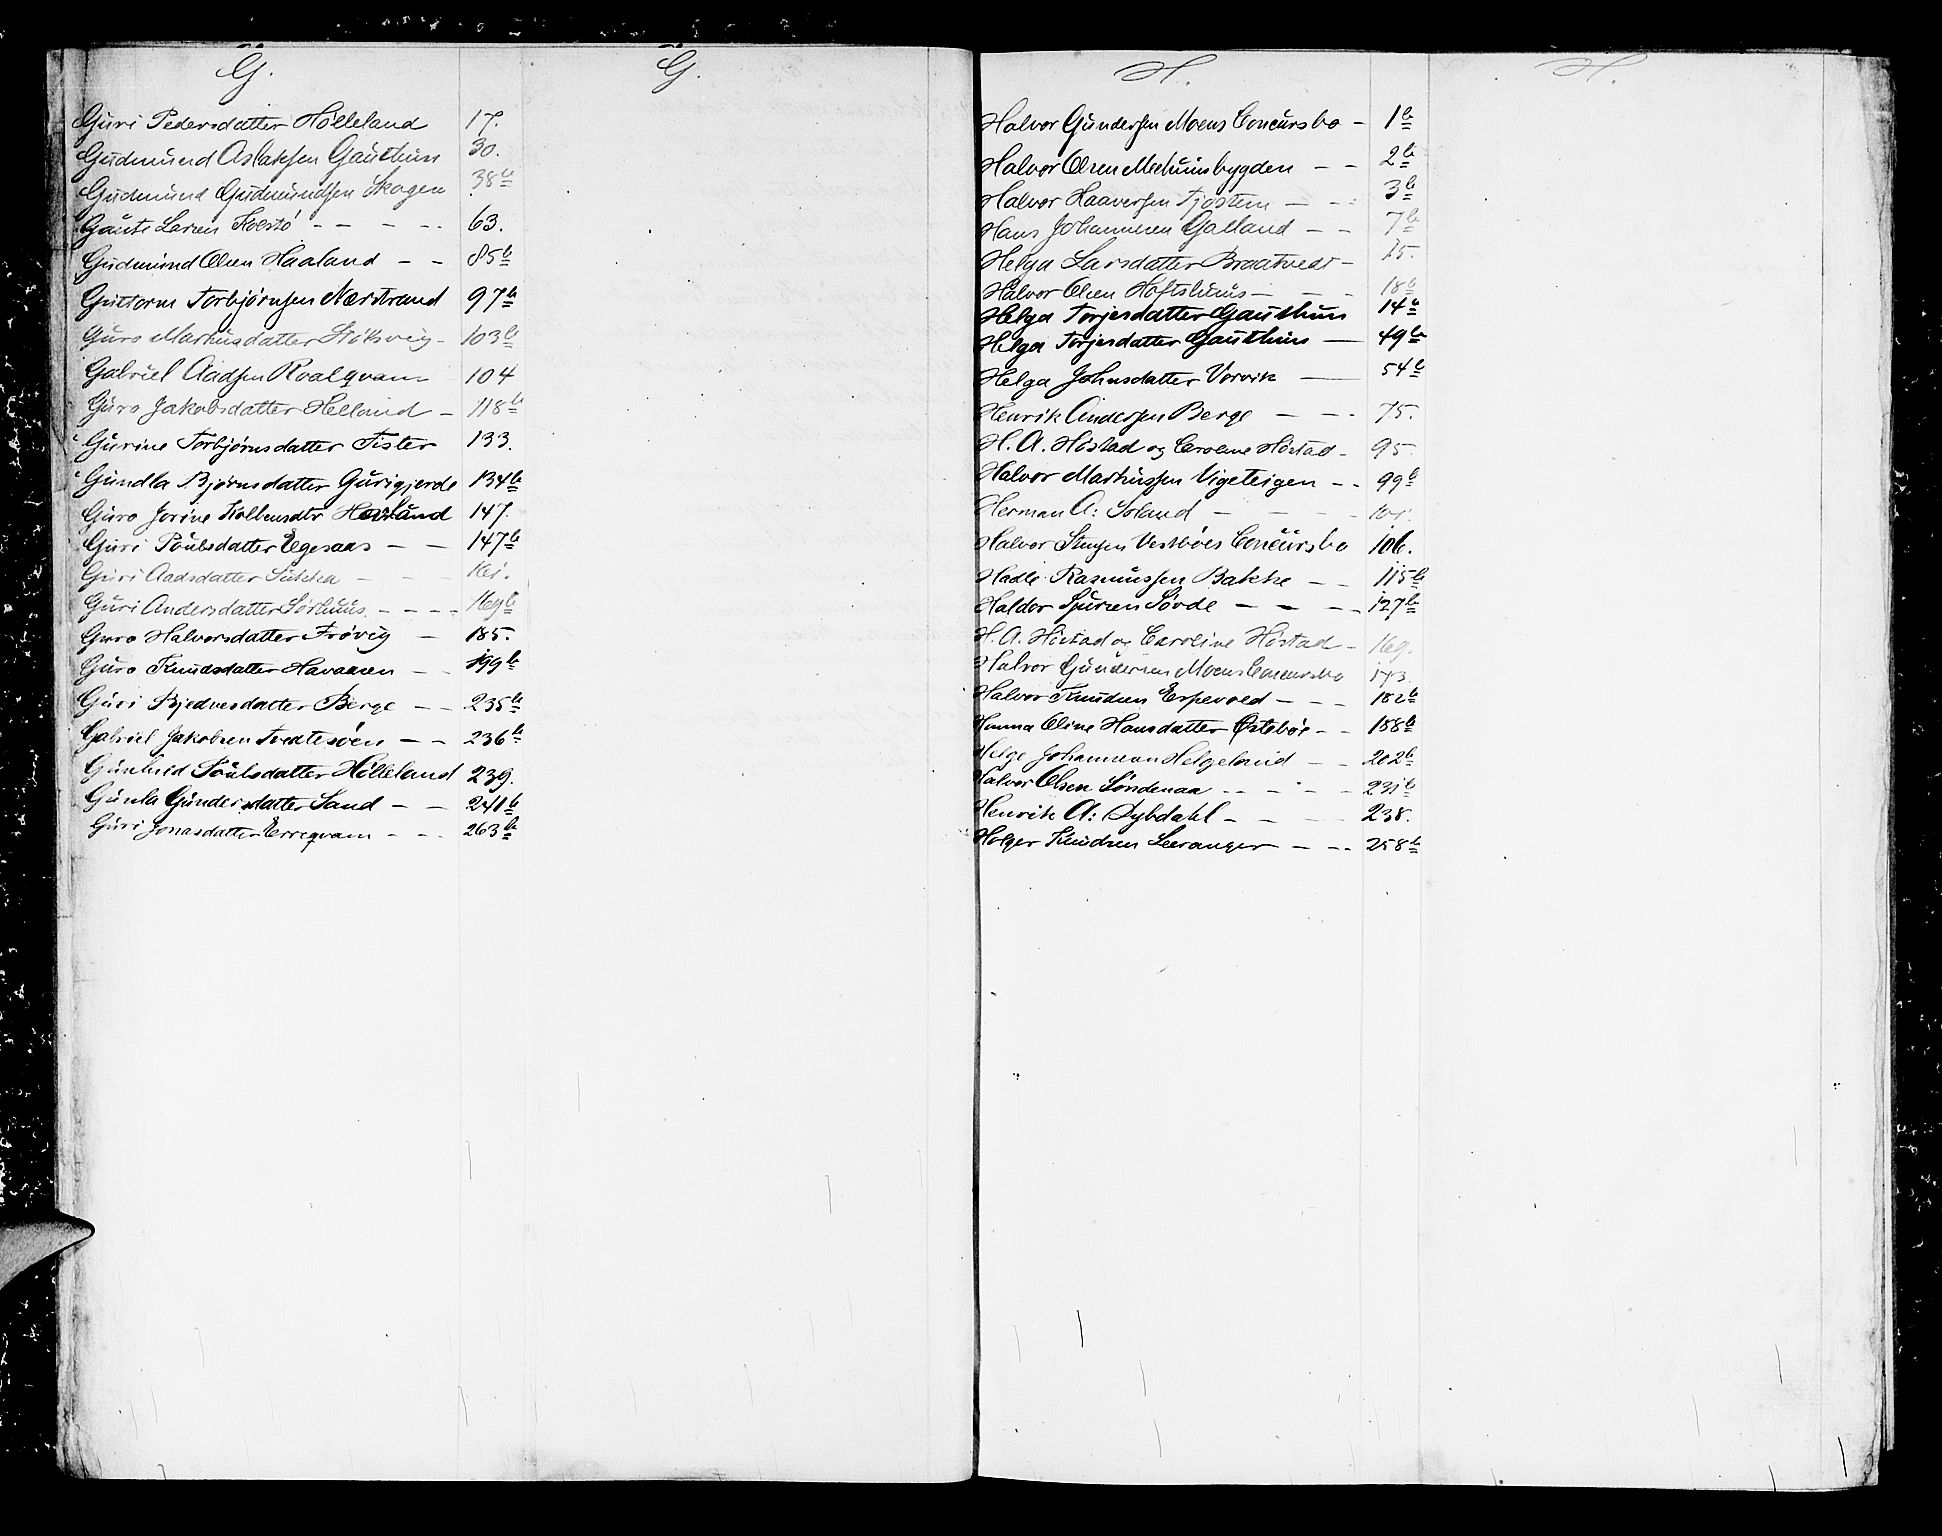 G.
Guri Pedersdatter Hölleland 17.
Gudmund Aslaksen Gauthun 30.
Gudmund Gudmundsen Skogen 38b
Gaute Larsen Holstö - - - - 63.
Gudmund Olsen Haaland - - 85b
Guttorm Torbjørnsen Nærstrand 97b
Guro Markusdatter Stöksvig - 103b
Gabriel Aadsen Roalqvam 104
Guro Jakobsdatter Helland - 118b
Gurine Torbjørnsdatter Fister 133.
Gundla Bjørnsdatter Gurigjerde 134b
Guro Jorine Kolbensdtr Hovland 147.
Guri Poulsdatter Egesaas - - 147b
Guri Aadsdatter Sukka - - 161.
Guri Andersdatter Sørhuus - - - - 169b
Guro Halvorsdatter Frøvig - 185.
Guro Knudsdatter Havaasen - - 199b
Guri Bjednesdatter Berge - - 235b
Gabriel Jakobsen Tvedtesøen - - 236b
Gunhild Poulsdatter Hölleland 239.
Gunla Gundersdatter Sand - - 241b
Guri Jonasdatter Erreqvam - - - 263b
G.
H.
Halvor Gundersen Moens Concursbo - 1b
Halvor Olsen Mehuusbygden - - 2b
Halvor Haaversen Fjøsten - - - 3b
Hans Johannesen Galland - - 7b
Helga Larsdatter Braatvedt - 15.
Halvor Olsen Hoftshuus - - - 18b
Helga Torjesdatter Gauthun 14b
Helga Torjesdatter Gauthun - 49b
Helga Johnsdatter Vorvik - 54b
Henrik Andersen Berge - - - 75.
H. A. Höstad og Caroline Höstad - 95
Halvor Markussen Vigeteigen - - 99b
Herman A: Soland - - - - 101.
Halvor Stensen Vestbøes Concursbo 106.
Hadle Rasmussen Bakke - - 115b
Haldor Sjursen Søvde - - - - 127b
H. A. Höstad og Caroline Höstad - 169.
Halvor Gundersen Moens Concursbo 173.
Halvor Knudsen Espevold - - - 182b
Hanna Oline Hansdatter Østebøe - - 188b
Helge Johannesen Helgeland - - 202b
Halvor Olsen Søndenaa - - - - - 231b
Henrik A: Dybdahl - - - - 238.
Holger Knudsen Leeranger - - - 258b
H.